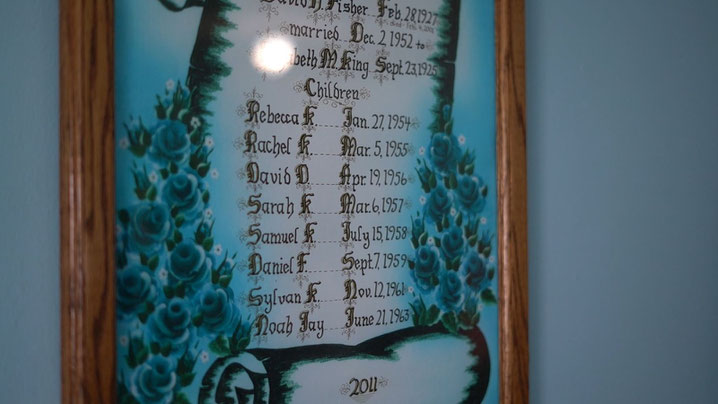 David D. Fisher Feb. 28, 1927
married Dec. 2, 1952 to
beth M. King Sept. 23, 1925
Children
Rebecca K. Jan. 27, 1954
Rachel K. Mar. 5, 1955
David D. Apr. 19, 1956
Sarah K. Mar. 6, 1957
Samuel K. July 15, 1958
Daniel F. Sept. 7, 1959
Sylvan K. Nov. 12, 1961
Noah Jay June 21, 1963
2011